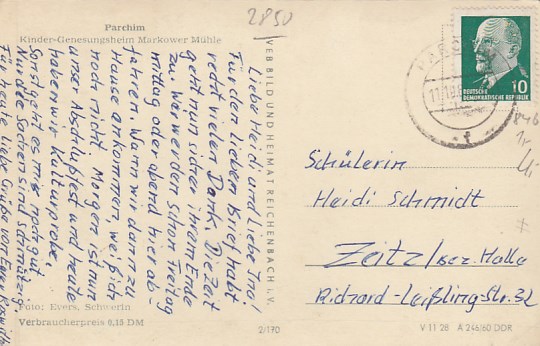 2850
Parchim
Kinder-Genesungsheim Markower Mühle
Liebe Heidi und Liebe Ino!
Für den lieben Brief habt
recht vielen Dank. Die Zeit
geht nun sicher ihrem Ende
zu. Wir werden schon Freitag
mittag oder abend hier ab-
fahren. Wann wir dann zu
Hause ankommen, weiß ich
noch nicht. Morgen ist nun
unser Abschlußfest und heute
haben wir Kulturprobe.
Sonst geht es mir noch gut
Nur die Sachen sind schmutzig.
Für heute liebe Grüße von Eurer
Foto: Evers, Schwerin
Verbraucherpreis 0,15 DM
2/170
VEB BILD UND HEIMAT REICHENBACH i. V.
DEUTSCHE
DEMOKRATISCHE REPUBLIK
10
Schülerin
Heidi Schmidt
Zeitz/Bez. Halle
Richard-Leißling-Str. 32
V 11 28 A 246/60 DDR